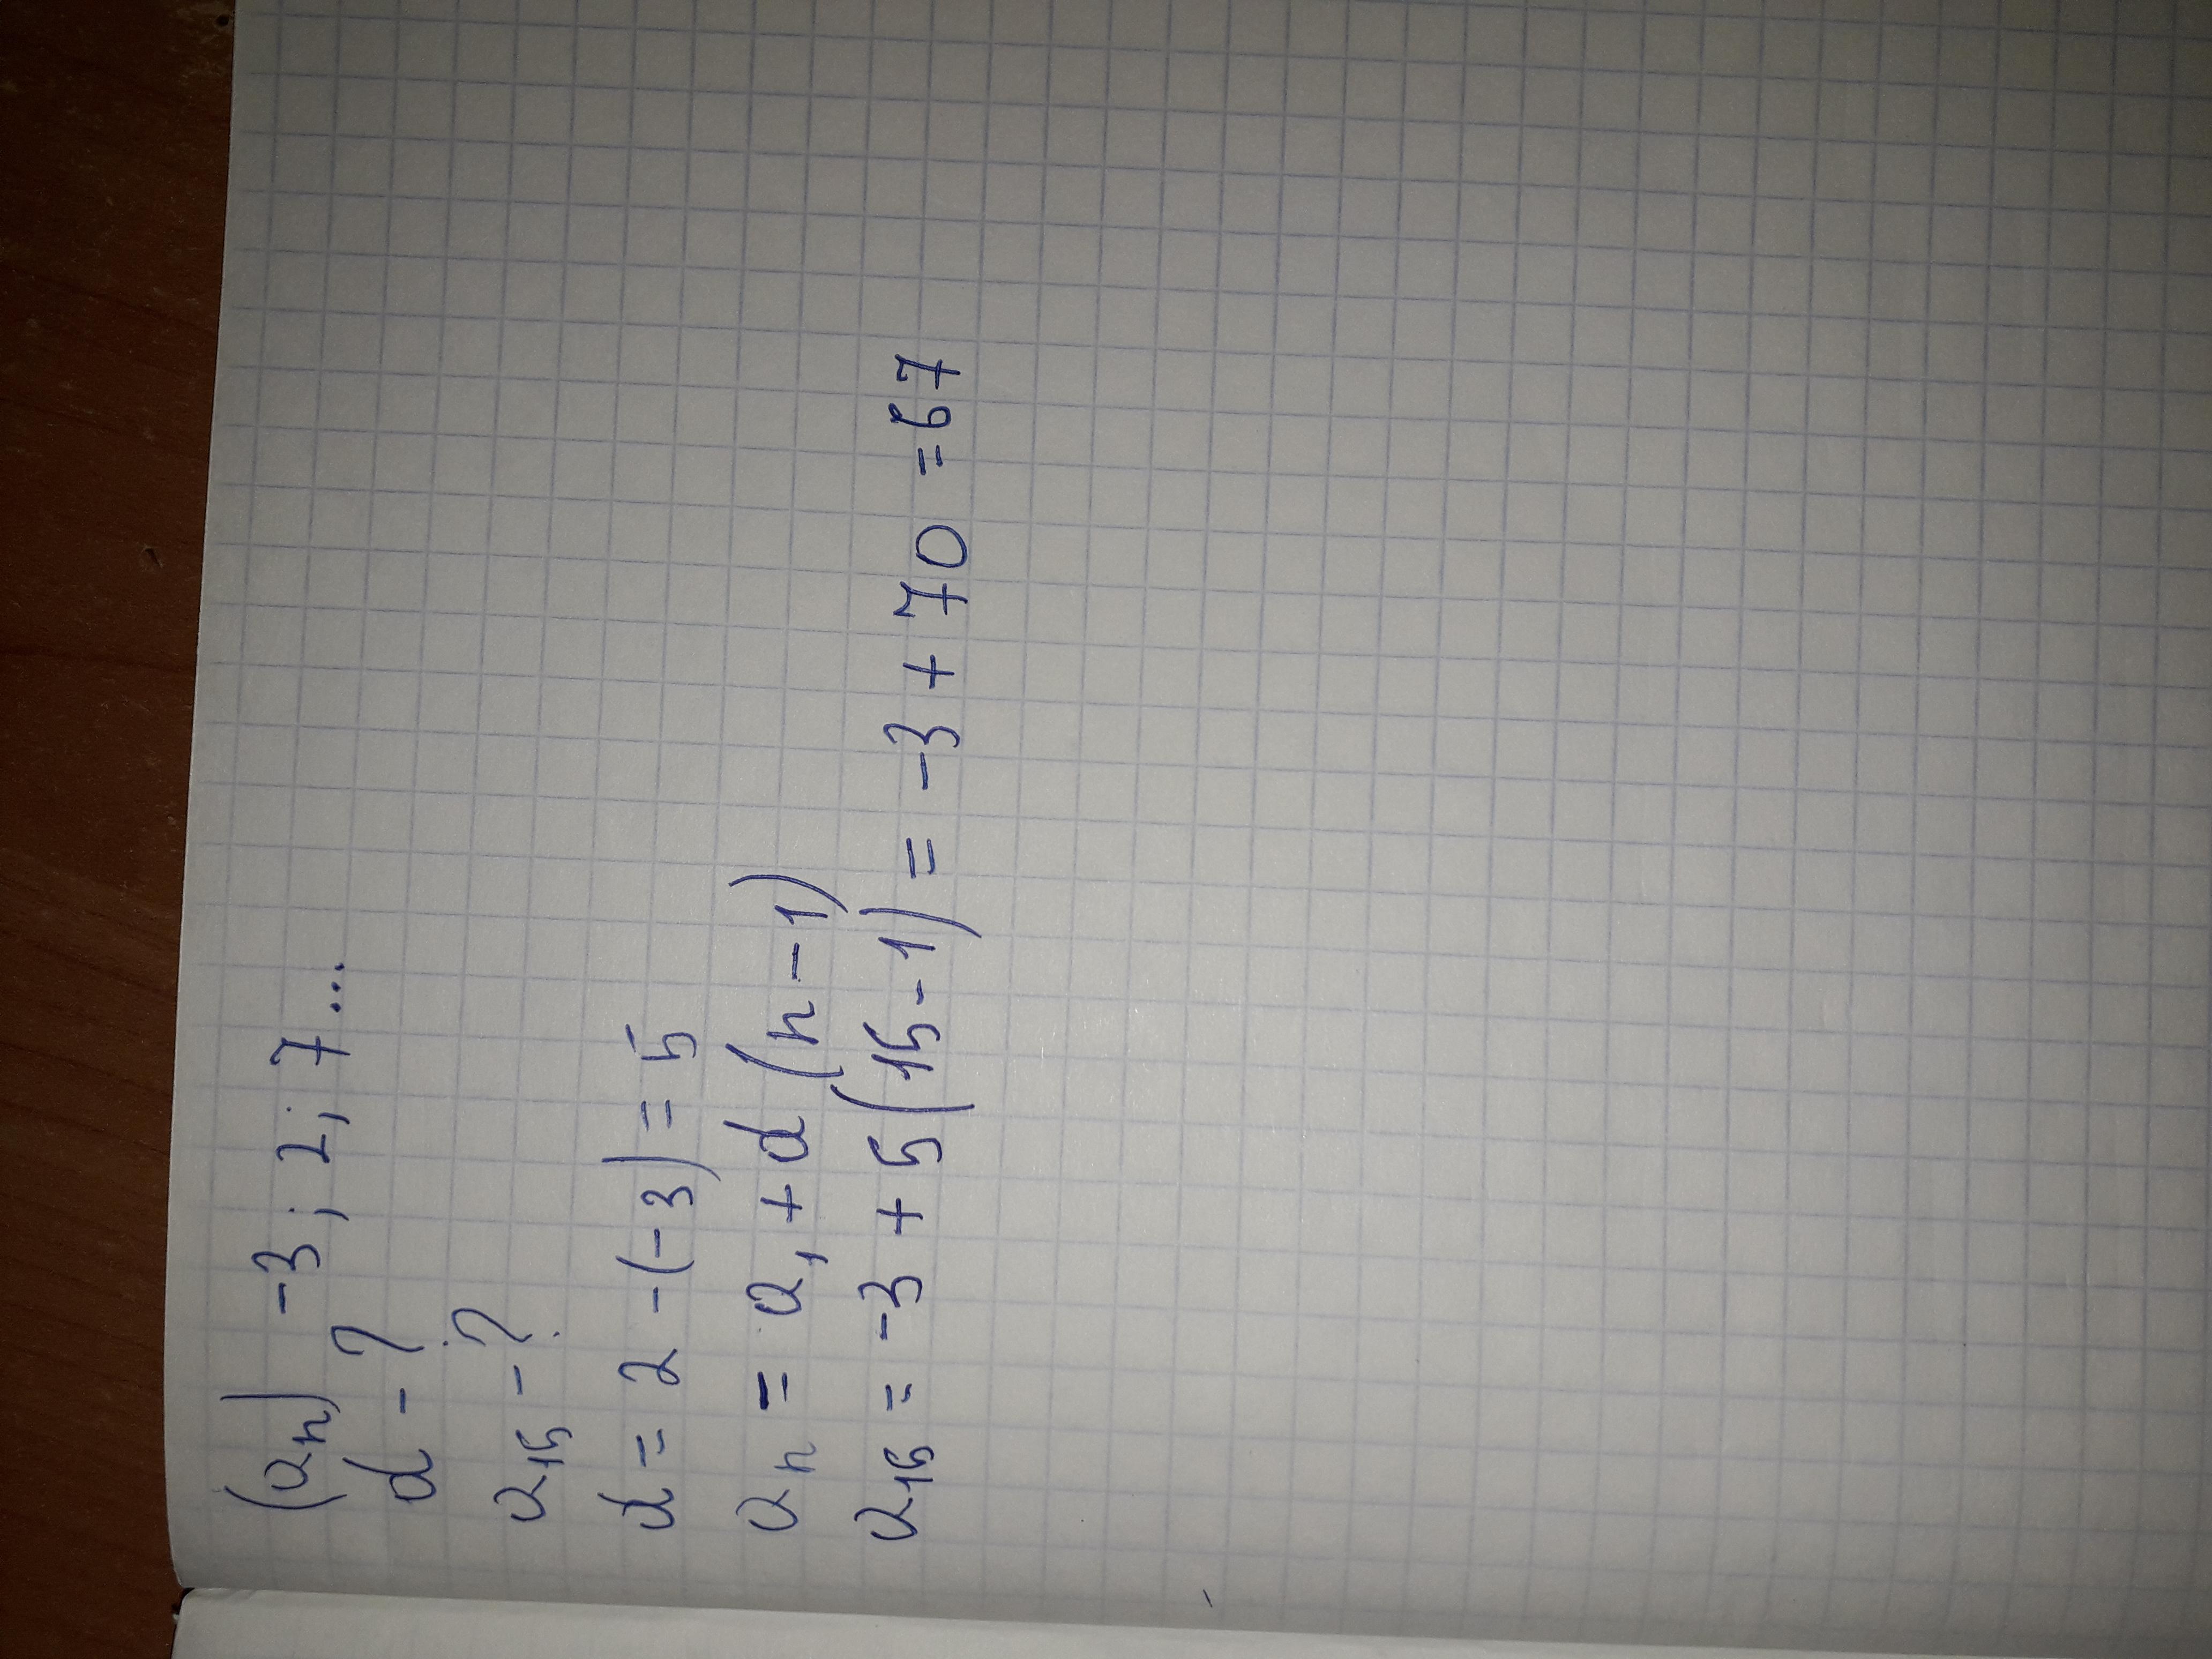 (aₙ) -3; 2; 7...
d - ?
a₁₅ - ?
d = 2 - (-3) = 5
aₙ = a₁ + d (n - 1)
a₁₅ = -3 + 5 (15 - 1) = -3 + 70 = 67